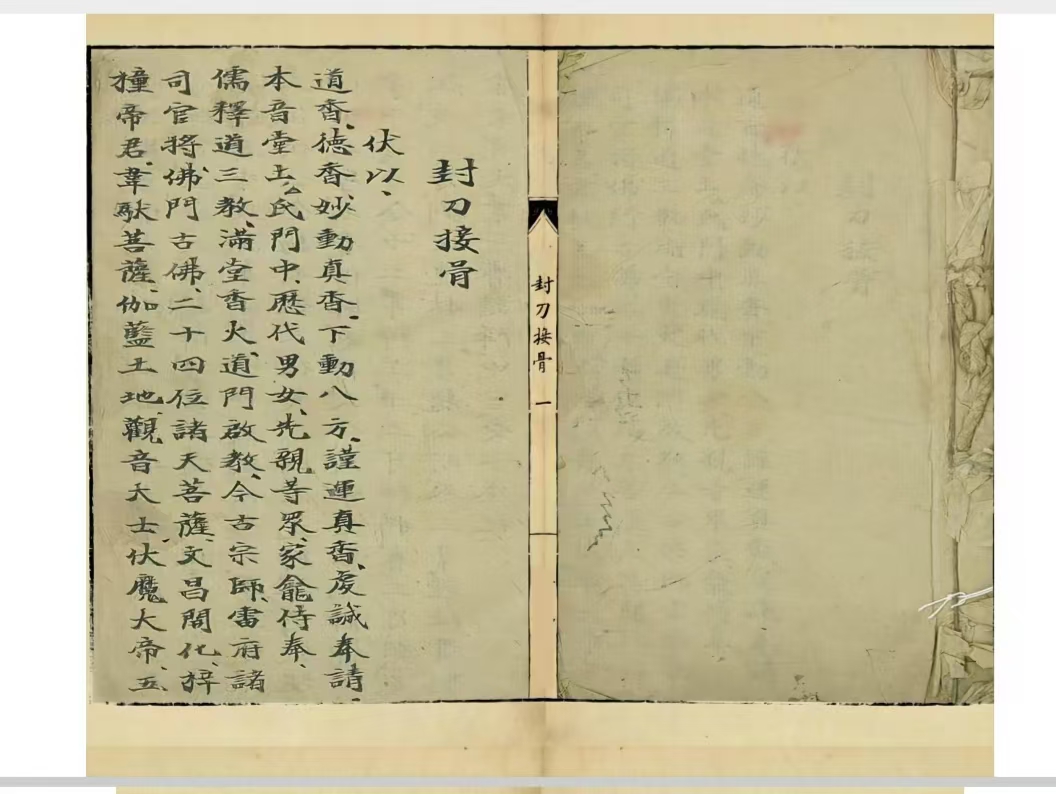 封刀接骨
伏以、
道香、德香、妙動真香、下動八方、謹運真香、虔誠奉請、
本音堂上ム氏門中、歷代男女、先親等眾、家龕侍奉、
儒釋道三教、滿堂香火、道門啟教、今古宗師、雷府諸
司官將、佛門古佛、二十四位諸天菩薩、文昌開化、梓
橦帝君、韋馱菩薩、伽藍土地、觀音大士、伏魔大帝、五
封刀接骨 一